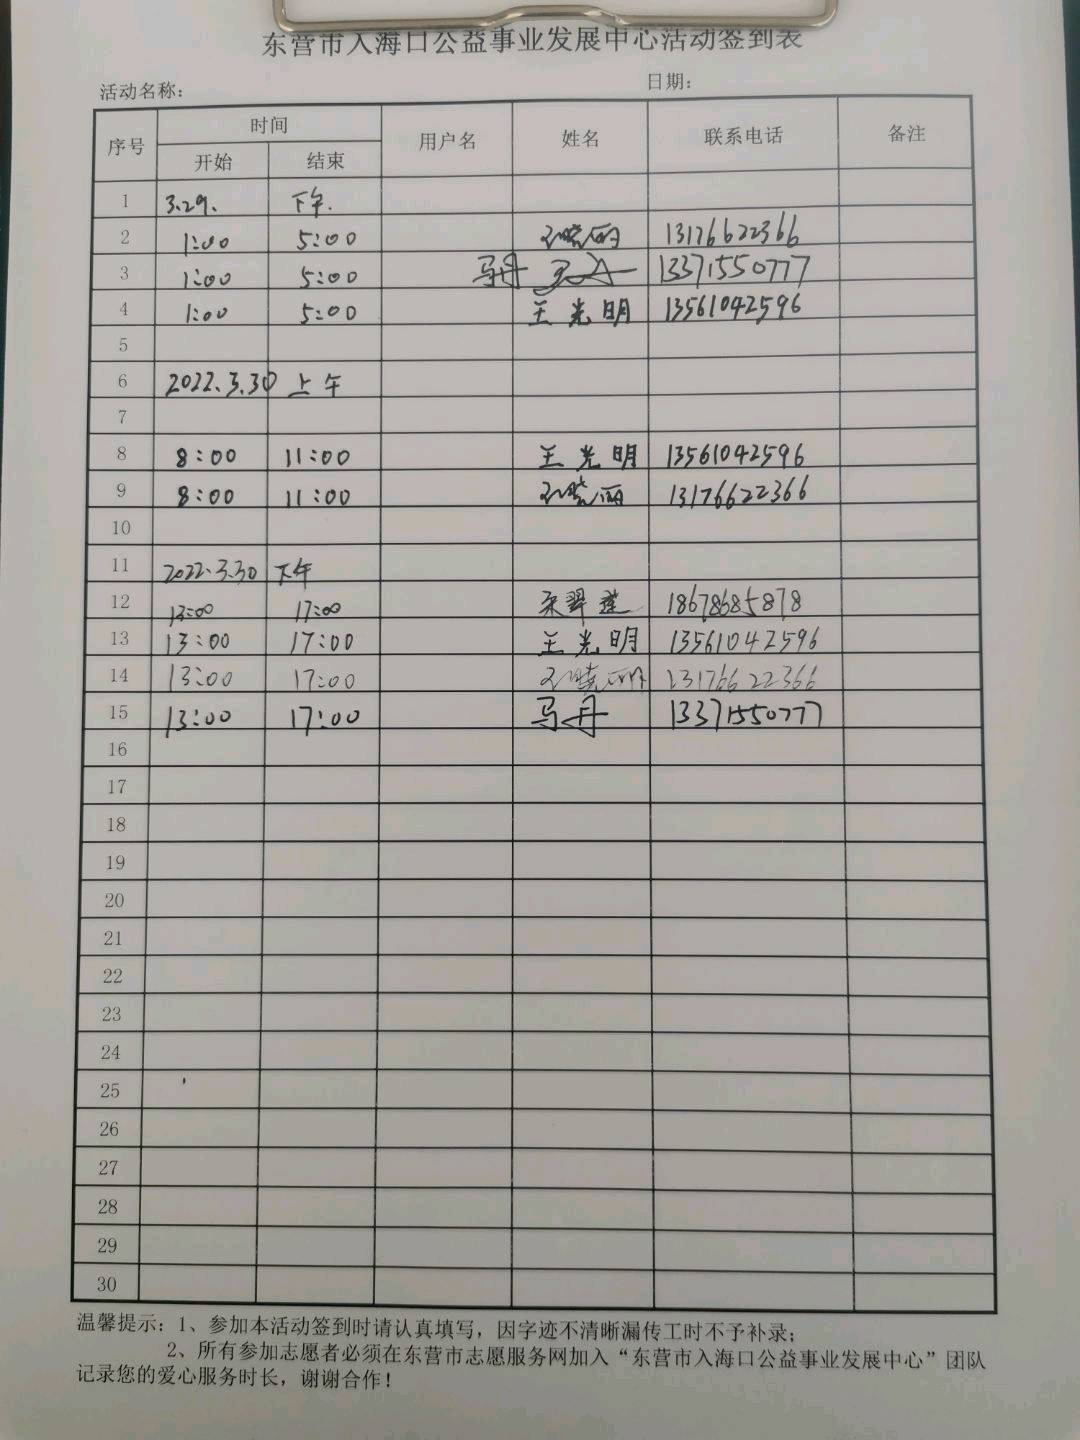 东营市入海口公益事业发展中心活动签到表
活动名称： 日期：
序号 时间 用户名 姓名 联系电话 备注
开始 结束
1 3.29. 下午.
2 1:00 5:00 孙晓丽 13176622366
3 1:00 5:00 马丹 13371550777
4 1:00 5:00 王光明 13561042596
5
6 2022.3.30 上午
7
8 8:00 11:00 王光明 13561042596
9 8:00 11:00 孙晓丽 13176622366
10
11 2022.3.30 下午
12 13:00 17:00 18678685878
13 13:00 17:00 王光明 13561042596
14 13:00 17:00 孙晓丽 13176622366
15 13:00 17:00 马丹 13371550777
16
17
18
19
20
21
22
23
24
25
26
27
28
29
30
温馨提示：1、参加本活动签到时请认真填写，因字迹不清晰漏传工时不予补录；
2、所有参加志愿者必须在东营市志愿服务网加入“东营市入海口公益事业发展中心”团队
记录您的爱心服务时长，谢谢合作！